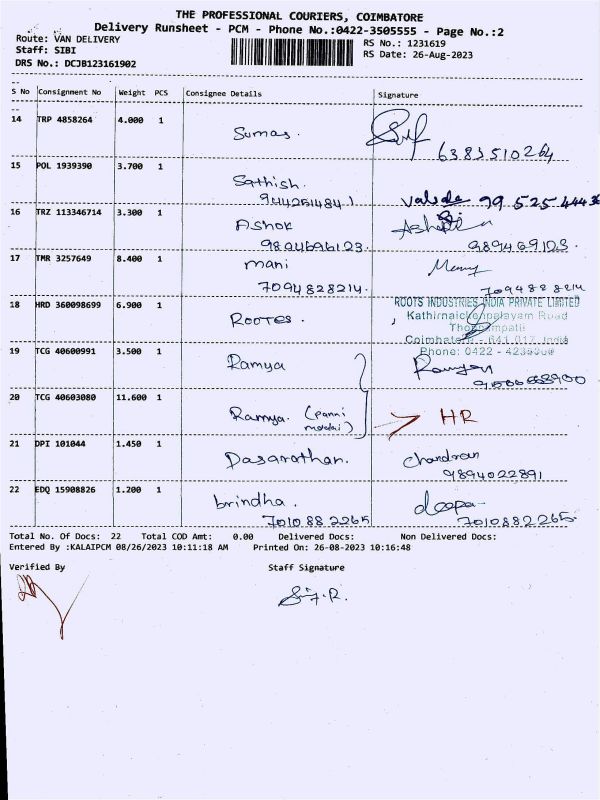 THE PROFESSIONAL COURIERS, COIMBATORE
Delivery Runsheet - PCM - Phone No.:0422-3505555 - Page No.:2
Route: VAN DELIVERY RS No.: 1231619
Staff: SIBI RS Date: 26-Aug-2023
DRS No.: DCJB123161902
S No Consignment No Weight PCS Consignee Details Signature
14 TRP 4858264 4.000 1
Sumas.
6383510264
15 POL 1939390 3.700 1
Sathish.
9442514841 99 525 44436
16 TRZ 113346714 3.300 1
Ashok
9894696123. 989469123.
17 TMR 3257649 8.400 1
mani
7094828214. 7094828214
18 HRD 360098699 6.900 1 ROOTS INDUSTRIES INDIA PRIVATE LIMITED
ROOTES. Kathirnaickenpalayam Road
Coimbatore - 641 017. India
19 TCG 40600991 3.500 1 Phone: 0422 -
Ramya
20 TCG 40603080 11.600 1
Ramya. HR
21 DPI 101044 1.450 1
Dasarathan. Chandran
9894022891
22 EDQ 15908826 1.200 1
brindha. deepa
7010882265 7010882265.
Total No. Of Docs: 22 Total COD Amt: 0.00 Delivered Docs: Non Delivered Docs:
Entered By :KALAIPCM 08/26/2023 10:11:18 AM Printed On: 26-08-2023 10:16:48
Verified By Staff Signature